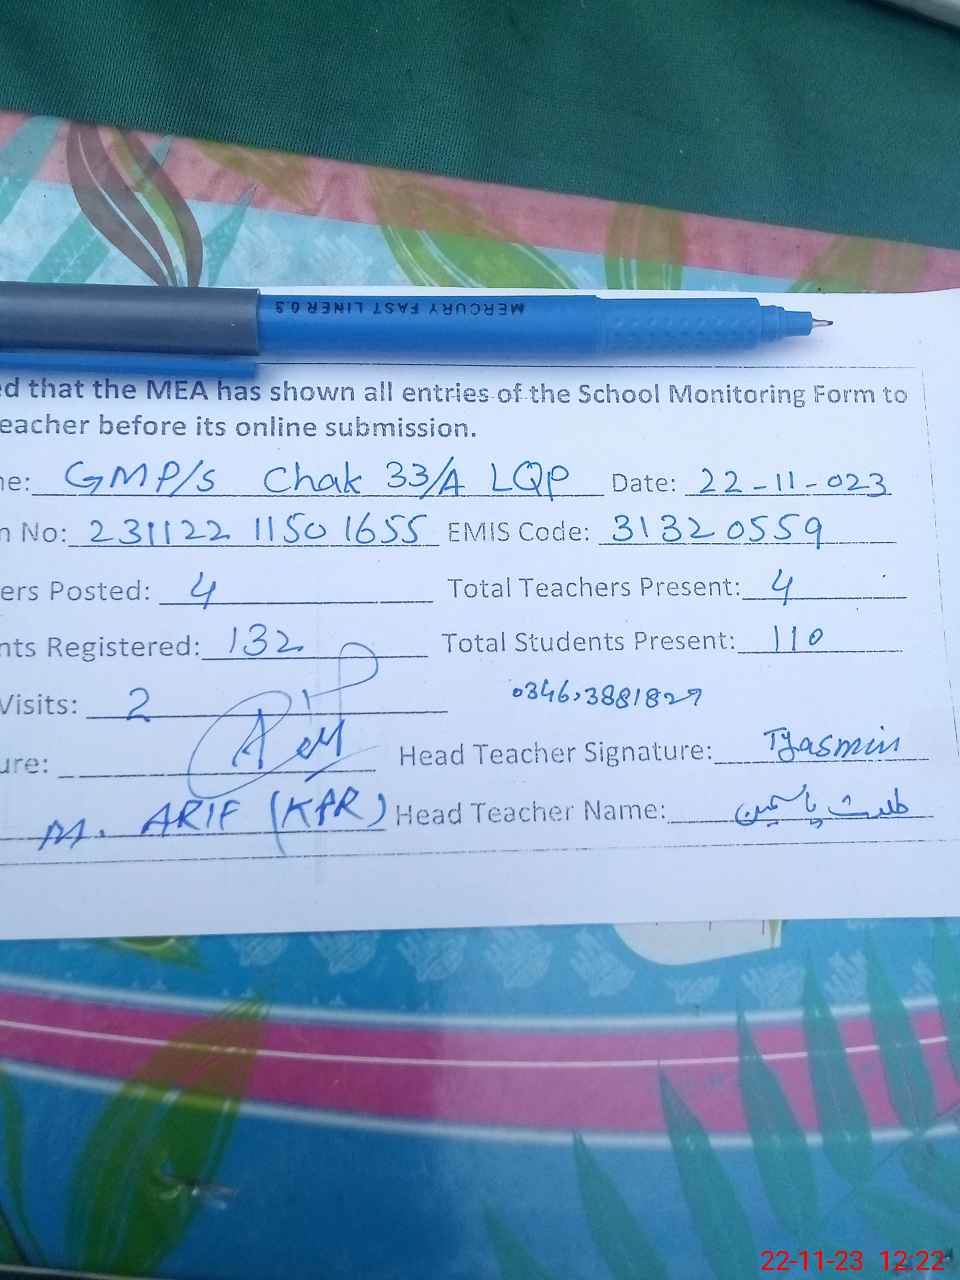 MERCURY FAST LINER 0.5
ed that the MEA has shown all entries of the School Monitoring Form to
eacher before its online submission.
ne: GMP/S Chak 33/A LQP Date: 22-11-023
n No: 231122 1150 1655 EMIS Code: 31320559
ers Posted: 4 Total Teachers Present: 4
nts Registered: 132 Total Students Present: 110
Visits: 2 0346,3881827
ure: Head Teacher Signature: Tyasmin
M. ARIF (KPR) Head Teacher Name: طلعت یاسمین
22-11-23 12:22